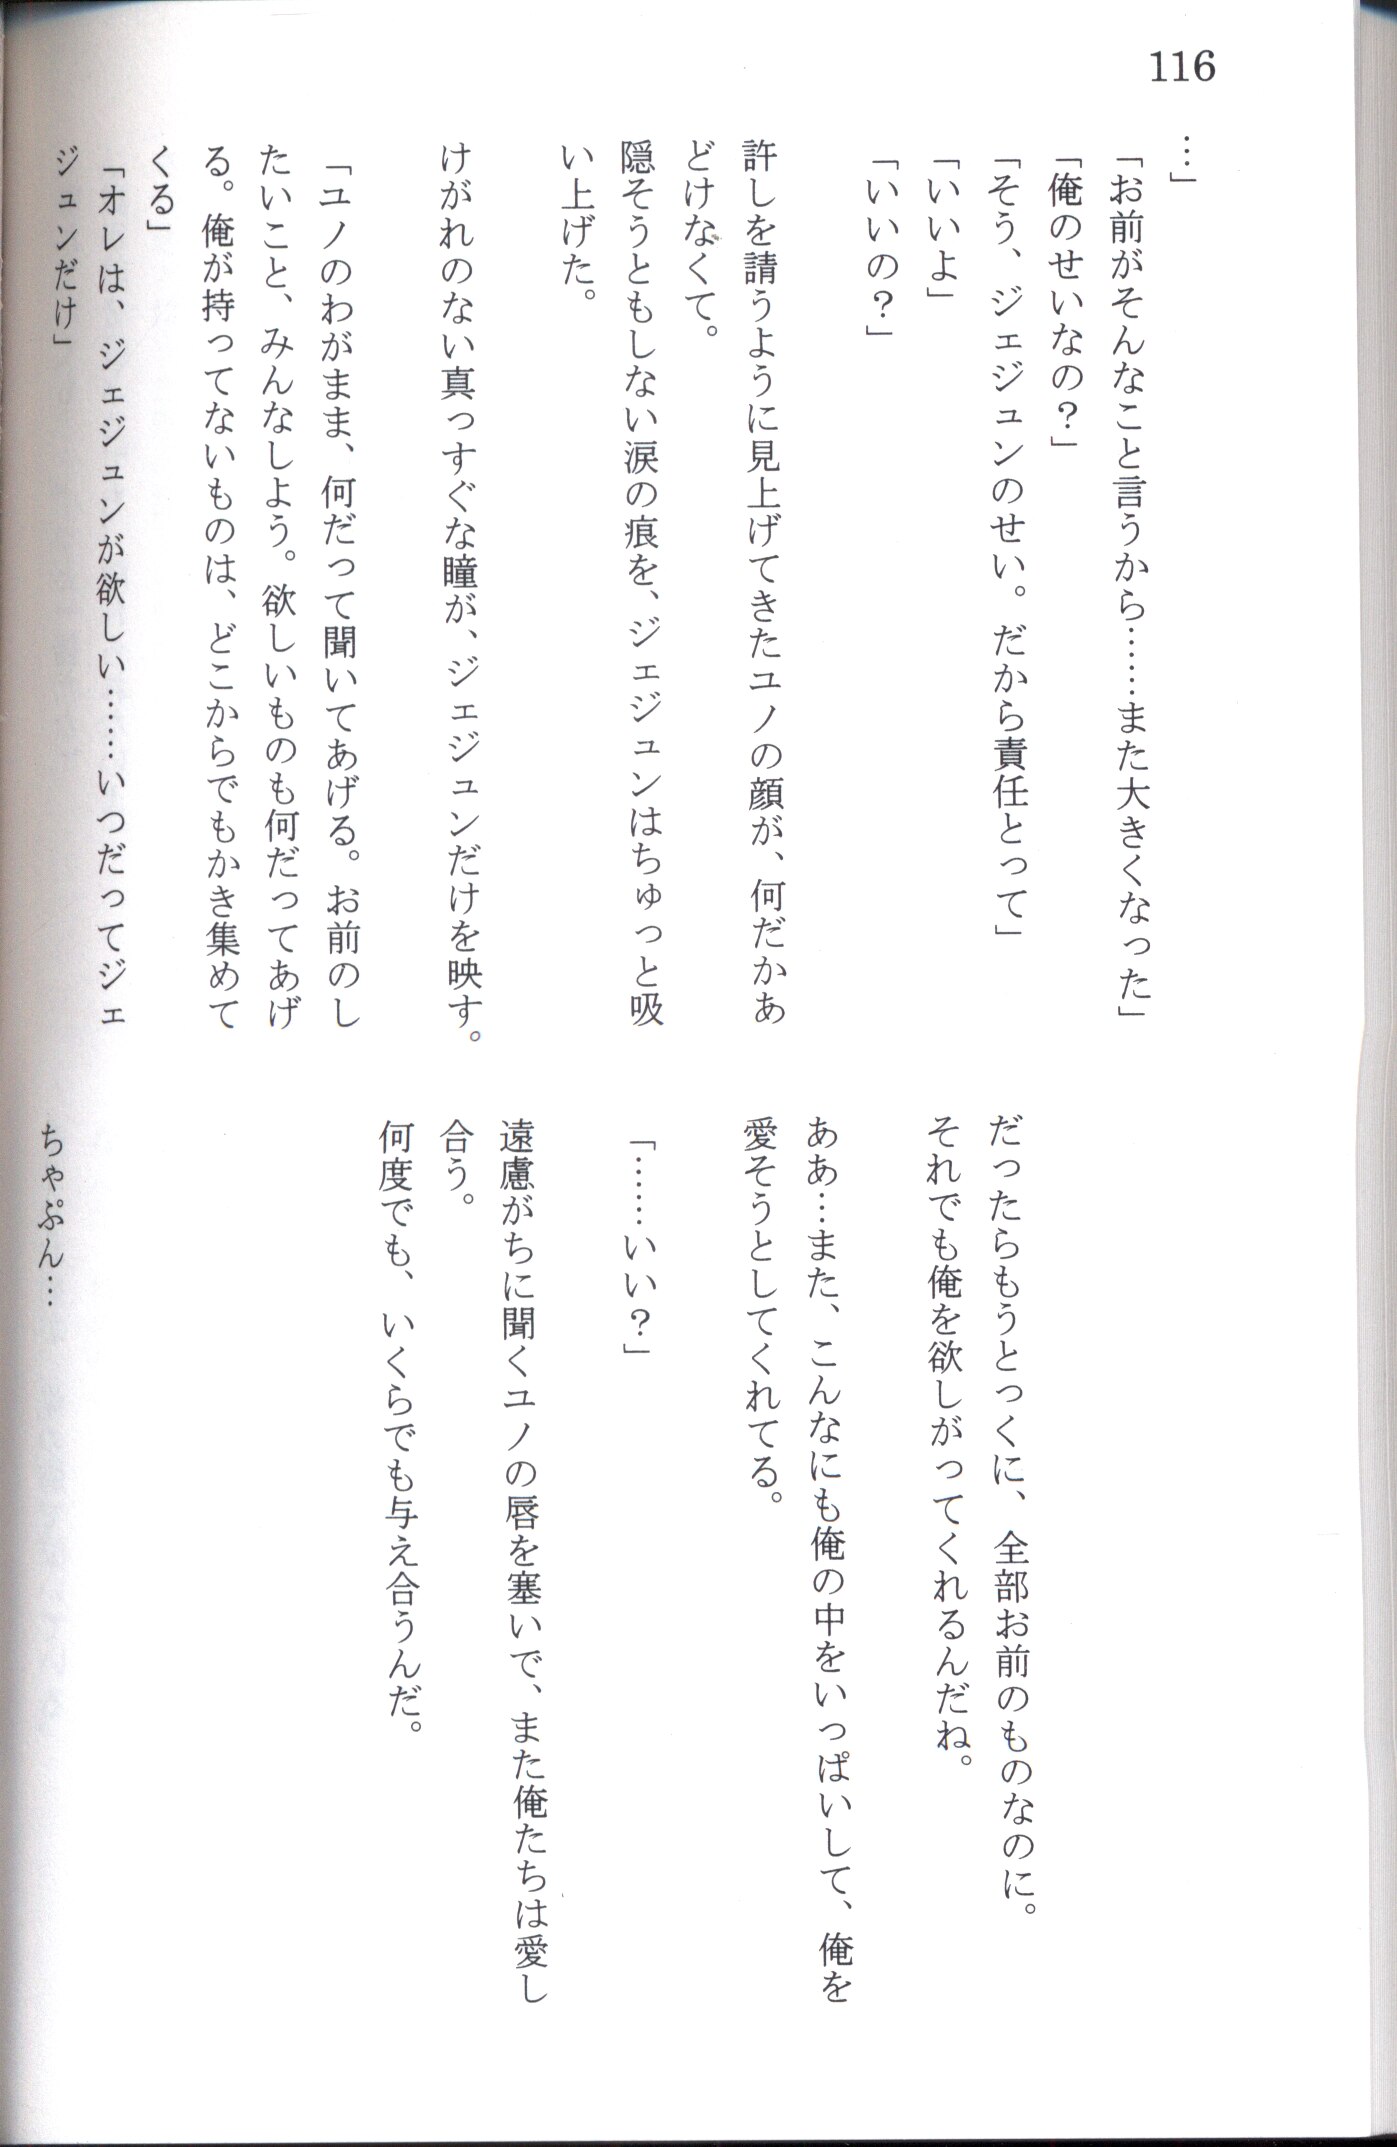 116
…」
「お前がそんなこと言うから……また大きくなった」
「俺のせいなの？」
「そう、ジェジュンのせい。だから責任とって」
「いいよ」
「いいの？」
許しを請うように見上げてきたユノの顔が、何だかあ
どけなくて。
隠そうともしない涙の痕を、ジェジュンはちゅっと吸
い上げた。
けがれのない真っすぐな瞳が、ジェジュンだけを映す。
「ユノのわがまま、何だって聞いてあげる。お前のし
たいこと、みんなしよう。欲しいものも何だってあげ
る。俺が持ってないものは、どこからでもかき集めて
くる」
「オレは、ジェジュンが欲しい……いつだってジェ
ジュンだけ」
だったらもうとっくに、全部お前のものなのに。
それでも俺を欲しがってくれるんだね。
ああ…また、こんなにも俺の中をいっぱいして、俺を
愛そうとしてくれてる。
「……いい？」
遠慮がちに聞くユノの唇を塞いで、また俺たちは愛し
合う。
何度でも、いくらでも与え合うんだ。
ちゃぷん…